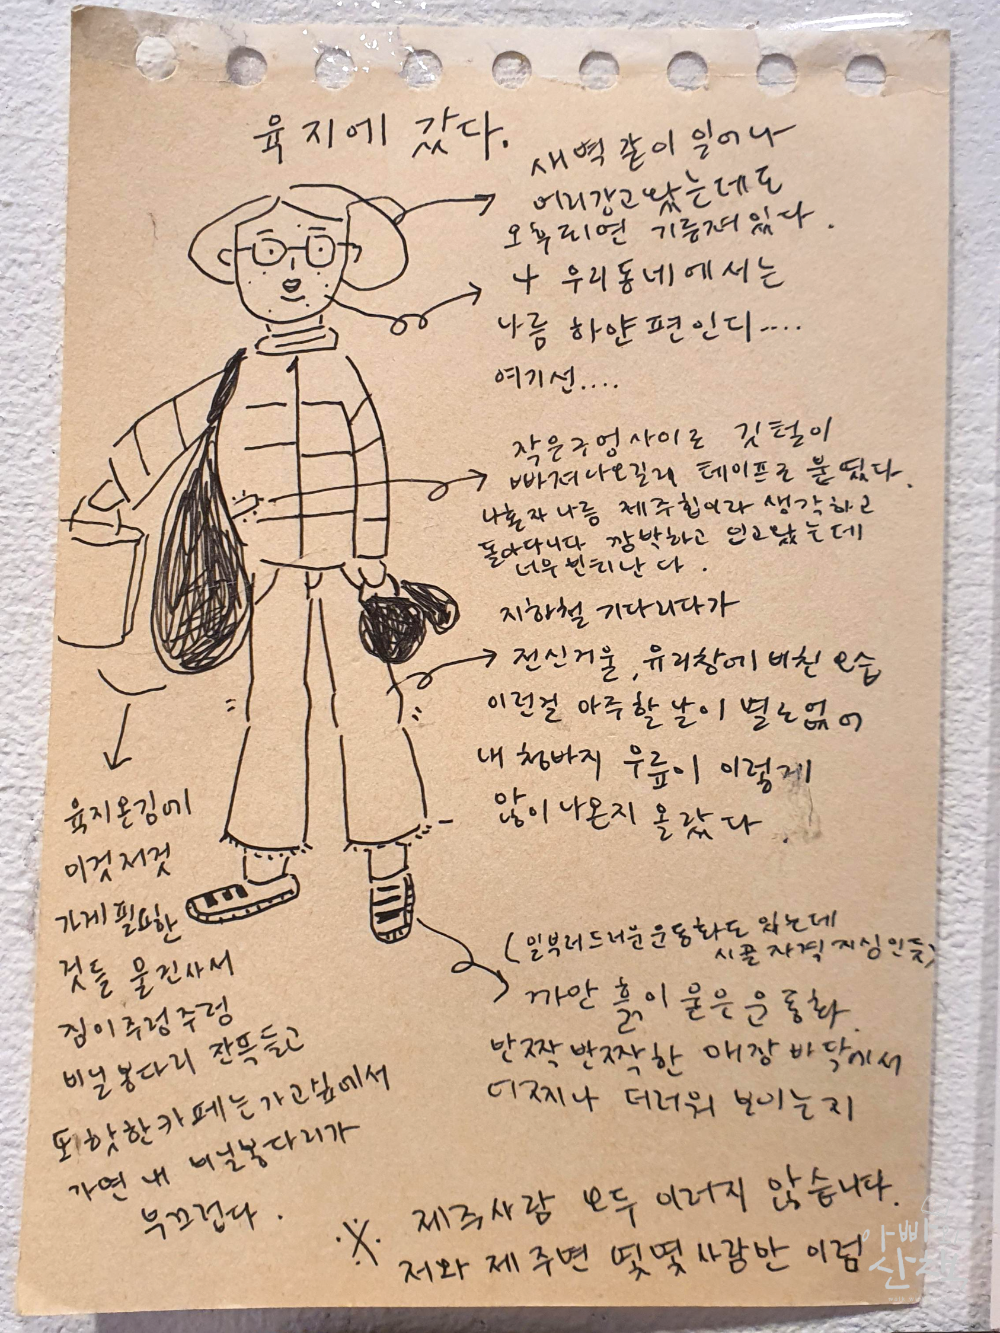 육지에 갔다.
새벽 같이 일어나
머리감고 왔는데도
오후 되면 기름져있다.
나 우리동네에서는
나름 하얀편인디....
여기선....
작은구멍사이로 깃털이
빠져나오길래 테이프로 붙였다.
나혼자 나름 제주힙이라 생각하고
돌아다니다 깜박하고 입고왔는데
너무 빈티난다.
지하철 기다리다가
전신거울, 유리창에 비친 모습
이런걸 마주할 날이 별로없어
내 청바지 무릎이 이렇게
많이 나온지 몰랐다.
(일부러드러운운동화도 있는데
시골 자격지심인듯)
까만 흙이 묻은 운동화.
반짝반짝한 매장 바닥에서
어찌나 더러워 보이는지
육지온김에
이것저것
가게필요한
것들 물건사서
짐이주렁주렁
비닐봉다리 잔뜩들고
또 핫한카페는가고싶에서
가면 내 비닐봉다리가
부끄럽다.
※ 제주사람 모두 이러지 않습니다.
저와 제 주변 몇몇 사람만 이럼
아빠